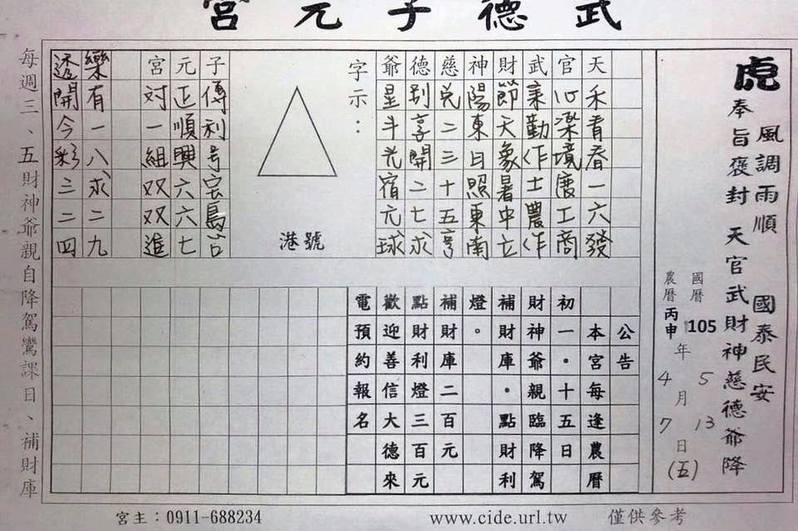 武德子元宮
虎 風調雨順 國泰民安
奉旨褒封 天官武財神慈德爺降
國曆 105年5月13日
農曆 丙申 4 7 (五)
天禾青春一六發
官心深境廣工商
武秉勤作士農作
財節天象暑中立
神陽東日照東南
慈兌二三十五亨
德別享開二七求
爺星斗光宿亢球
字示：
港號
子傳利号
元正順興六六七
宮对一組双双進
樂有一八求二九
透開今彩三二四
公告
本宮每逢農曆
初一・十五日
財神爺親臨降駕
補財庫・點財利
燈。
補財庫二百元
點財利燈三百元
歡迎善信大德來
電預約報名
每週三、五財神爺親自降駕鸞課目、補財庫
宮主：0911-688234
www.cide.url.tw
僅供參考